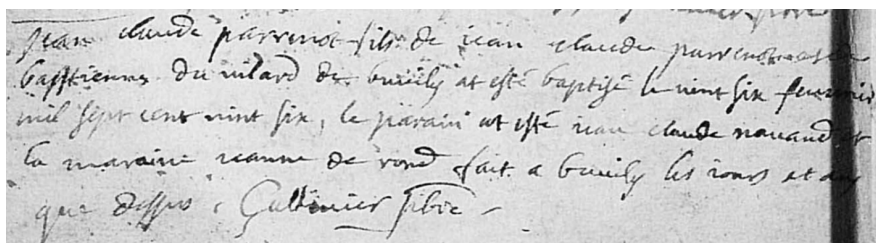 jean claude parrenot fils de jean claude parrenot et de
baptienne du vilard de  at esté baptisé le vint six feuvrier
mil sept cent vint six, le parain at esté jean claude  et
la maraine jeanne de rond fait a  les jours et an
que dessus. Gallinier pbre